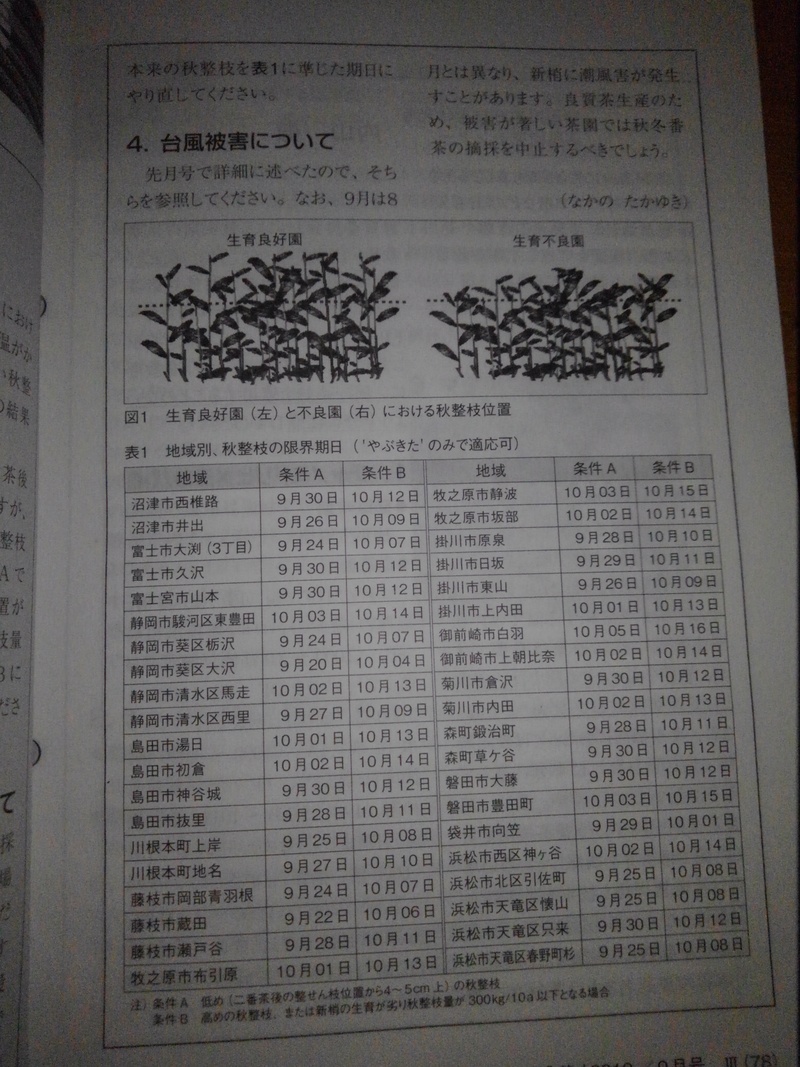 本来の秋整枝を表1に準じた期日に
やり直してください。
4. 台風被害について
先月号で詳細に述べたので、そち
らを参照してください。なお、9月は8
月とは異なり、新梢に潮風害が発生
すことがあります。良質茶生産のた
め、被害が著しい茶園では秋冬番
茶の摘採を中止するべきでしょう。
(なかの たかゆき)
生育良好園 生育不良園
図1 生育良好園(左)と不良園(右)における秋整枝位置
表1 地域別、秋整枝の限界期日('やぶきた'のみで適応可)
地域 条件A 条件B 地域 条件A 条件B
沼津市西椎路 9月30日 10月12日 牧之原市静波 10月03日 10月15日
沼津市井出 9月26日 10月09日 牧之原市坂部 10月02日 10月14日
富士市大渕(3丁目) 9月24日 10月07日 掛川市原泉 9月28日 10月10日
富士市久沢 9月30日 10月12日 掛川市日坂 9月29日 10月11日
富士宮市山本 9月30日 10月12日 掛川市東山 9月26日 10月09日
静岡市駿河区東豊田 10月03日 10月14日 掛川市上内田 10月01日 10月13日
静岡市葵区栃沢 9月24日 10月07日 御前崎市白羽 10月05日 10月16日
静岡市葵区大沢 9月20日 10月04日 御前崎市上朝比奈 10月02日 10月14日
静岡市清水区馬走 10月02日 10月13日 菊川市倉沢 9月30日 10月12日
静岡市清水区西里 9月27日 10月09日 菊川市内田 10月02日 10月13日
島田市湯日 10月01日 10月13日 森町鍛治町 9月28日 10月11日
島田市初倉 10月02日 10月14日 森町草ケ谷 9月30日 10月12日
島田市神谷城 9月30日 10月12日 磐田市大藤 9月30日 10月12日
島田市抜里 9月28日 10月11日 磐田市豊田町 10月03日 10月15日
川根本町上岸 9月25日 10月08日 袋井市向笠 9月29日 10月01日
川根本町地名 9月27日 10月10日 浜松市西区神ヶ谷 10月02日 10月14日
藤枝市岡部青羽根 9月24日 10月07日 浜松市北区引佐町 9月25日 10月08日
藤枝市蔵田 9月22日 10月06日 浜松市天竜区懐山 9月25日 10月08日
藤枝市瀬戸谷 9月28日 10月11日 浜松市天竜区只来 9月30日 10月12日
牧之原市布引原 10月01日 10月13日 浜松市天竜区春野町杉 9月25日 10月08日
注) 条件A 低め(二番茶後の整せん枝位置から4〜5cm上)の秋整枝
条件B 高めの秋整枝、または新梢の生育が劣り秋整枝量が300kg/10a以下となる場合
9月号 III (78)